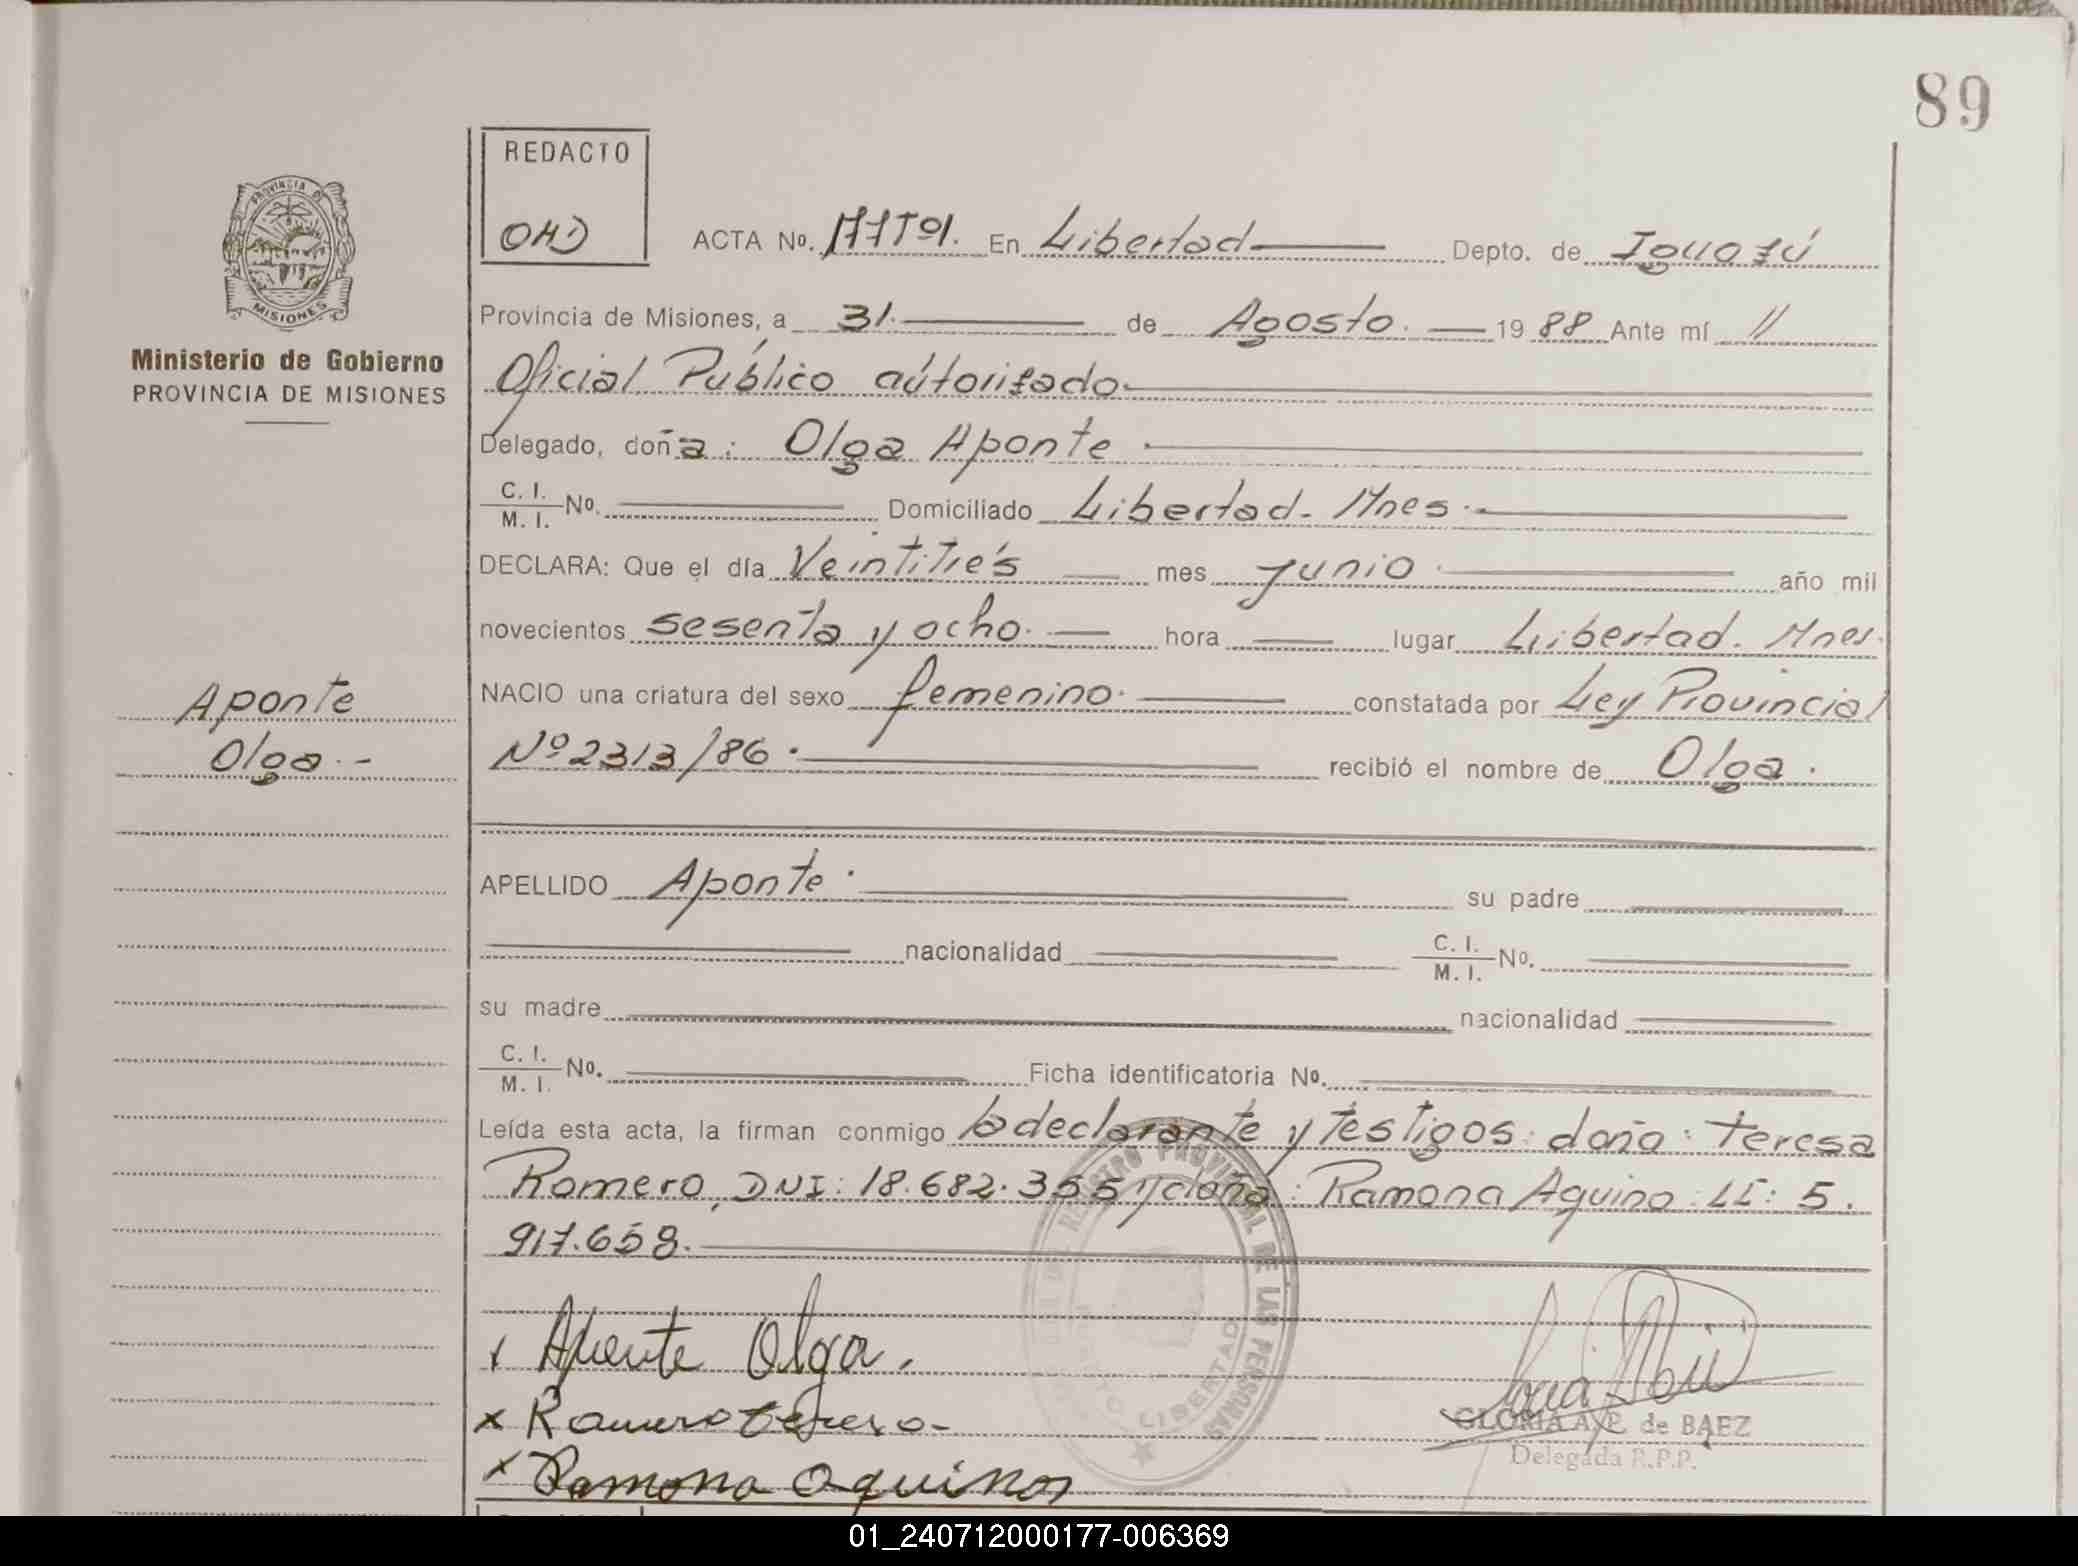 89
REDACTO
OHD
ACTA No. 177Tº1. En Libertad Depto. de Iguazú
PROVINCIA DE MISIONES
Provincia de Misiones, a 31. de Agosto. 1988 Ante mí //
Ministerio de Gobierno
PROVINCIA DE MISIONES
Oficial Público autorizado
Delegado, doña: Olga Aponte
C. I. M. I. No. Domiciliado Libertad - Mnes.
DECLARA: Que el día Veintitrés mes Junio año mil
novecientos sesenta y ocho. hora lugar Libertad. Mnes.
Aponte
NACIO una criatura del sexo femenino. constatada por Ley Provincial
Olga.-
Nº 2313/86. recibió el nombre de Olga.
APELLIDO Aponte. su padre
nacionalidad C. I. M. I. No.
su madre nacionalidad
C. I. M. I. No. Ficha identificatoria No.
Leída esta acta, la firman conmigo la declarante y testigos: doña: Teresa
Romero, DNI: 18.682.355 y doña: Ramona Aquino: LC: 5.
917.658.
REGISTRO PROVINCIAL DE LAS PERSONAS
LIBERTAD
x Aponte Olga.
x Romero teresa-
x Ramona aquino
GLORIA A. P. de BAEZ
Delegada R.P.P.
01_240712000177-006369